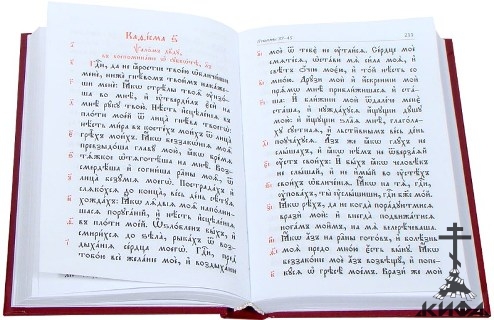 Каѳі́сма ѕ҃
Ѱало́мъ дв҃дꙋ,
въ воспомина́нїе ѡ҆ сꙋббѡ́тѣ, л҃з
Гдⷭ҇и, да не ꙗ҆́ростїю твое́ю ѡ҆бличи́ши
менѐ, нижѐ гнѣ́вомъ твои́мъ нака́жеши
менѐ. Ꙗ҆́кѡ стрѣ́лы твоѧ̑ ᲂу҆нзо́ша
во мнѣ̀, и҆ ᲂу҆тверди́лъ є҆сѝ на
мнѣ̀ рꙋ́кꙋ твою̀. Нѣ́сть и҆сцѣле́нїѧ въ
пло́ти мое́й ѿ лица̀ гнѣ́ва твоегѡ̀:
нѣ́сть ми́ра въ косте́хъ мои́хъ ѿ лица̀
грѣ̑хъ мои́хъ. Ꙗ҆́кѡ беззакѡ́нїѧ моѧ̑
превзыдо́ша главꙋ̀ мою̀, ꙗ҆́кѡ бре́мѧ
тѧ́жкое ѡ҆тѧготѣ́ша на мнѣ̀. Воз-
смердѣ́ша и҆ согни́ша ра̑ны моѧ̑ ѿ
лица̀ безꙋ́мїѧ моегѡ̀. Пострада́хъ и҆
слѧко́хсѧ до конца̀, ве́сь де́нь сѣ́тꙋѧ
хожда́хъ. Ꙗ҆́кѡ лѧ̑двїѧ моѧ̑ напо́лни-
шасѧ порꙋга́нїй, и҆ нѣ́сть и҆сцѣле́нїѧ
въ пло́ти мое́й. Ѡ҆ѕло́бленъ бы́хъ и҆
смири́хсѧ до ѕѣла̀, рыка́хъ ѿ воз-
дыха́нїѧ се́рдца моегѡ̀. Гдⷭ҇и, пред̾
тобо́ю всѐ жела́нїе моѐ, и҆ воздыха́нїе
моѐ ѿ тебє̀ не ᲂу҆таи́сѧ. Се́рдце моѐ
смѧте́сѧ, ѡ҆ста́ви мѧ̀ си́ла моѧ̀, и҆
свѣ́тъ ѻ҆́чїю моє́ю, и҆ то́й нѣ́сть со
мно́ю. Дрꙋ́зи моѝ и҆ и҆́скреннїи моѝ
прѧ́мѡ мнѣ̀ прибли́жишасѧ и҆ ста́-
ша: И҆ бли́жнїи моѝ ѿдале́че менѐ
ста́ша, и҆ нꙋжда́хꙋсѧ и҆́щꙋщїи дꙋ́шꙋ
мою̀: и҆ и҆́щꙋщїи ѕла̑ѧ мнѣ̀, глаго́ла-
хꙋ сꙋ́єтнаѧ, и҆ льсти̑внымъ ве́сь день
поꙋча́хꙋсѧ. А҆́зъ же ꙗ҆́кѡ глꙋ́хъ не
слы́шахъ, и҆ ꙗ҆́кѡ нѣ́мъ не ѿверза́ѧй
ᲂу҆́стъ свои́хъ. И҆ бы́хъ ꙗ҆́кѡ человѣ́къ
не слы́шай, и҆ не и҆мы́й во ᲂу҆стѣ́хъ
свои́хъ ѡ҆бличе́нїѧ. Ꙗ҆́кѡ на тѧ̀, гдⷭ҇и,
ᲂу҆пова́хъ, ты̀ ᲂу҆слы́шиши, гдⷭ҇и бж҃е мо́й.
Ꙗ҆́кѡ рѣ́хъ, да не когда̀ пора́дꙋютмисѧ
вразѝ моѝ: и҆ внегда̀ подвижа́тисѧ
нога́мъ мои̑мъ, на мѧ̀ велерѣ́чеваша.
Ꙗ҆́кѡ а҆́зъ на ра̑ны гото́въ, и҆ болѣ́знь
моѧ̀ предо мно́ю є҆́сть вы́нꙋ. Ꙗ҆́кѡ
беззако́нїе моѐ а҆́зъ возвѣщꙋ̀, и҆ по-
пекꙋ́сѧ ѡ҆ грѣсѣ̀ мое́мъ. Вразѝ же моѝ
КИФА